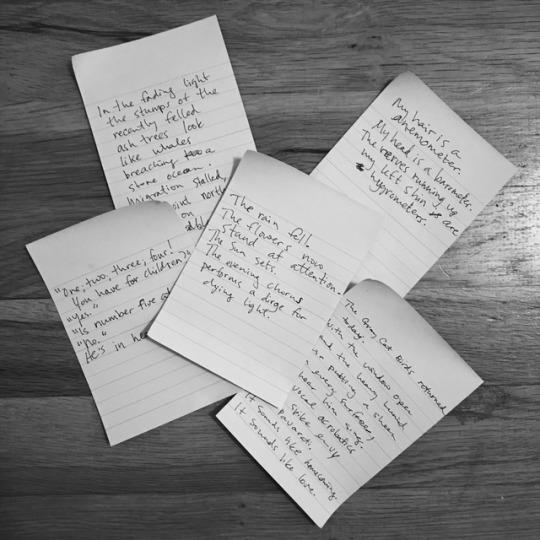 In the fading light
the stumps of the
recently felled
ash trees look
like whales
breaching a
stone ocean.
Migration stalled,
north
on
My hair is a
anemometer.
My head is a barometer.
The nerves running up
my left shin are
hygrometers.
The rain fell.
The flowers now
Stand at attention.
The Sun sets.
The evening chorus
performs a dirge for
dying light.
"One, two, three, four!
You have four children
"Yes."
"Is number five
"No."
He's in he
The Gray Cat Birds returned
today.
with the window open
and the heavy sheen
pudding
every surface,
hear him sing.
vocal acrobatics
spike envy
Pavarotti.
It sounds like homecoming.
It sounds like love.